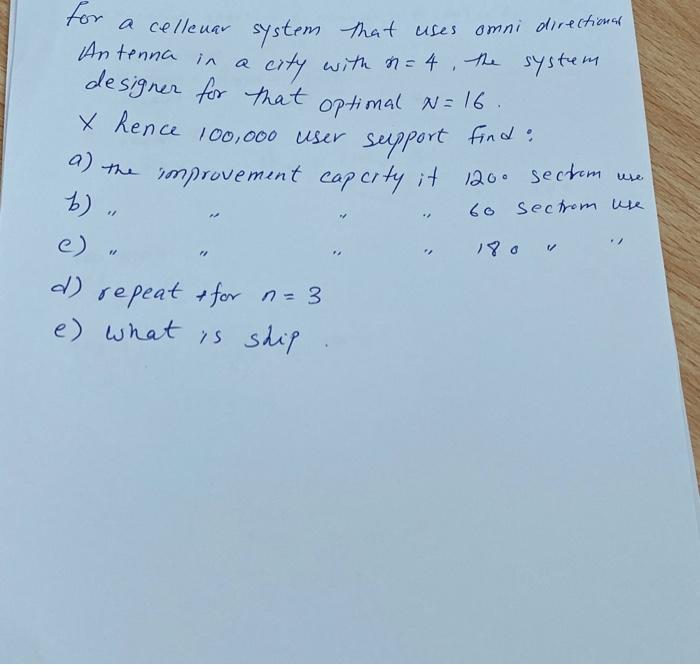 for a celleuar system that uses omni directional
Antenna in a city with n = 4, the system
designer for that optimal N = 16.
X hence 100,000 user support find :
a) the improvement capcity it 120° sectrom use
b) " " " " 60 sectrom use
c) " " " " 180 " "
d) repeat + for n = 3
e) what is ship.